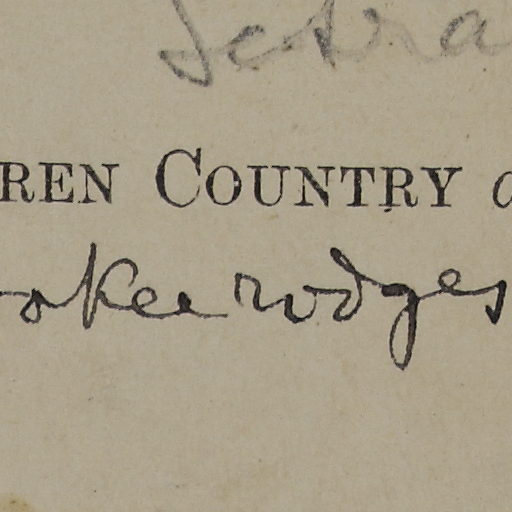 Tetra
REN COUNTRY
okee rodges